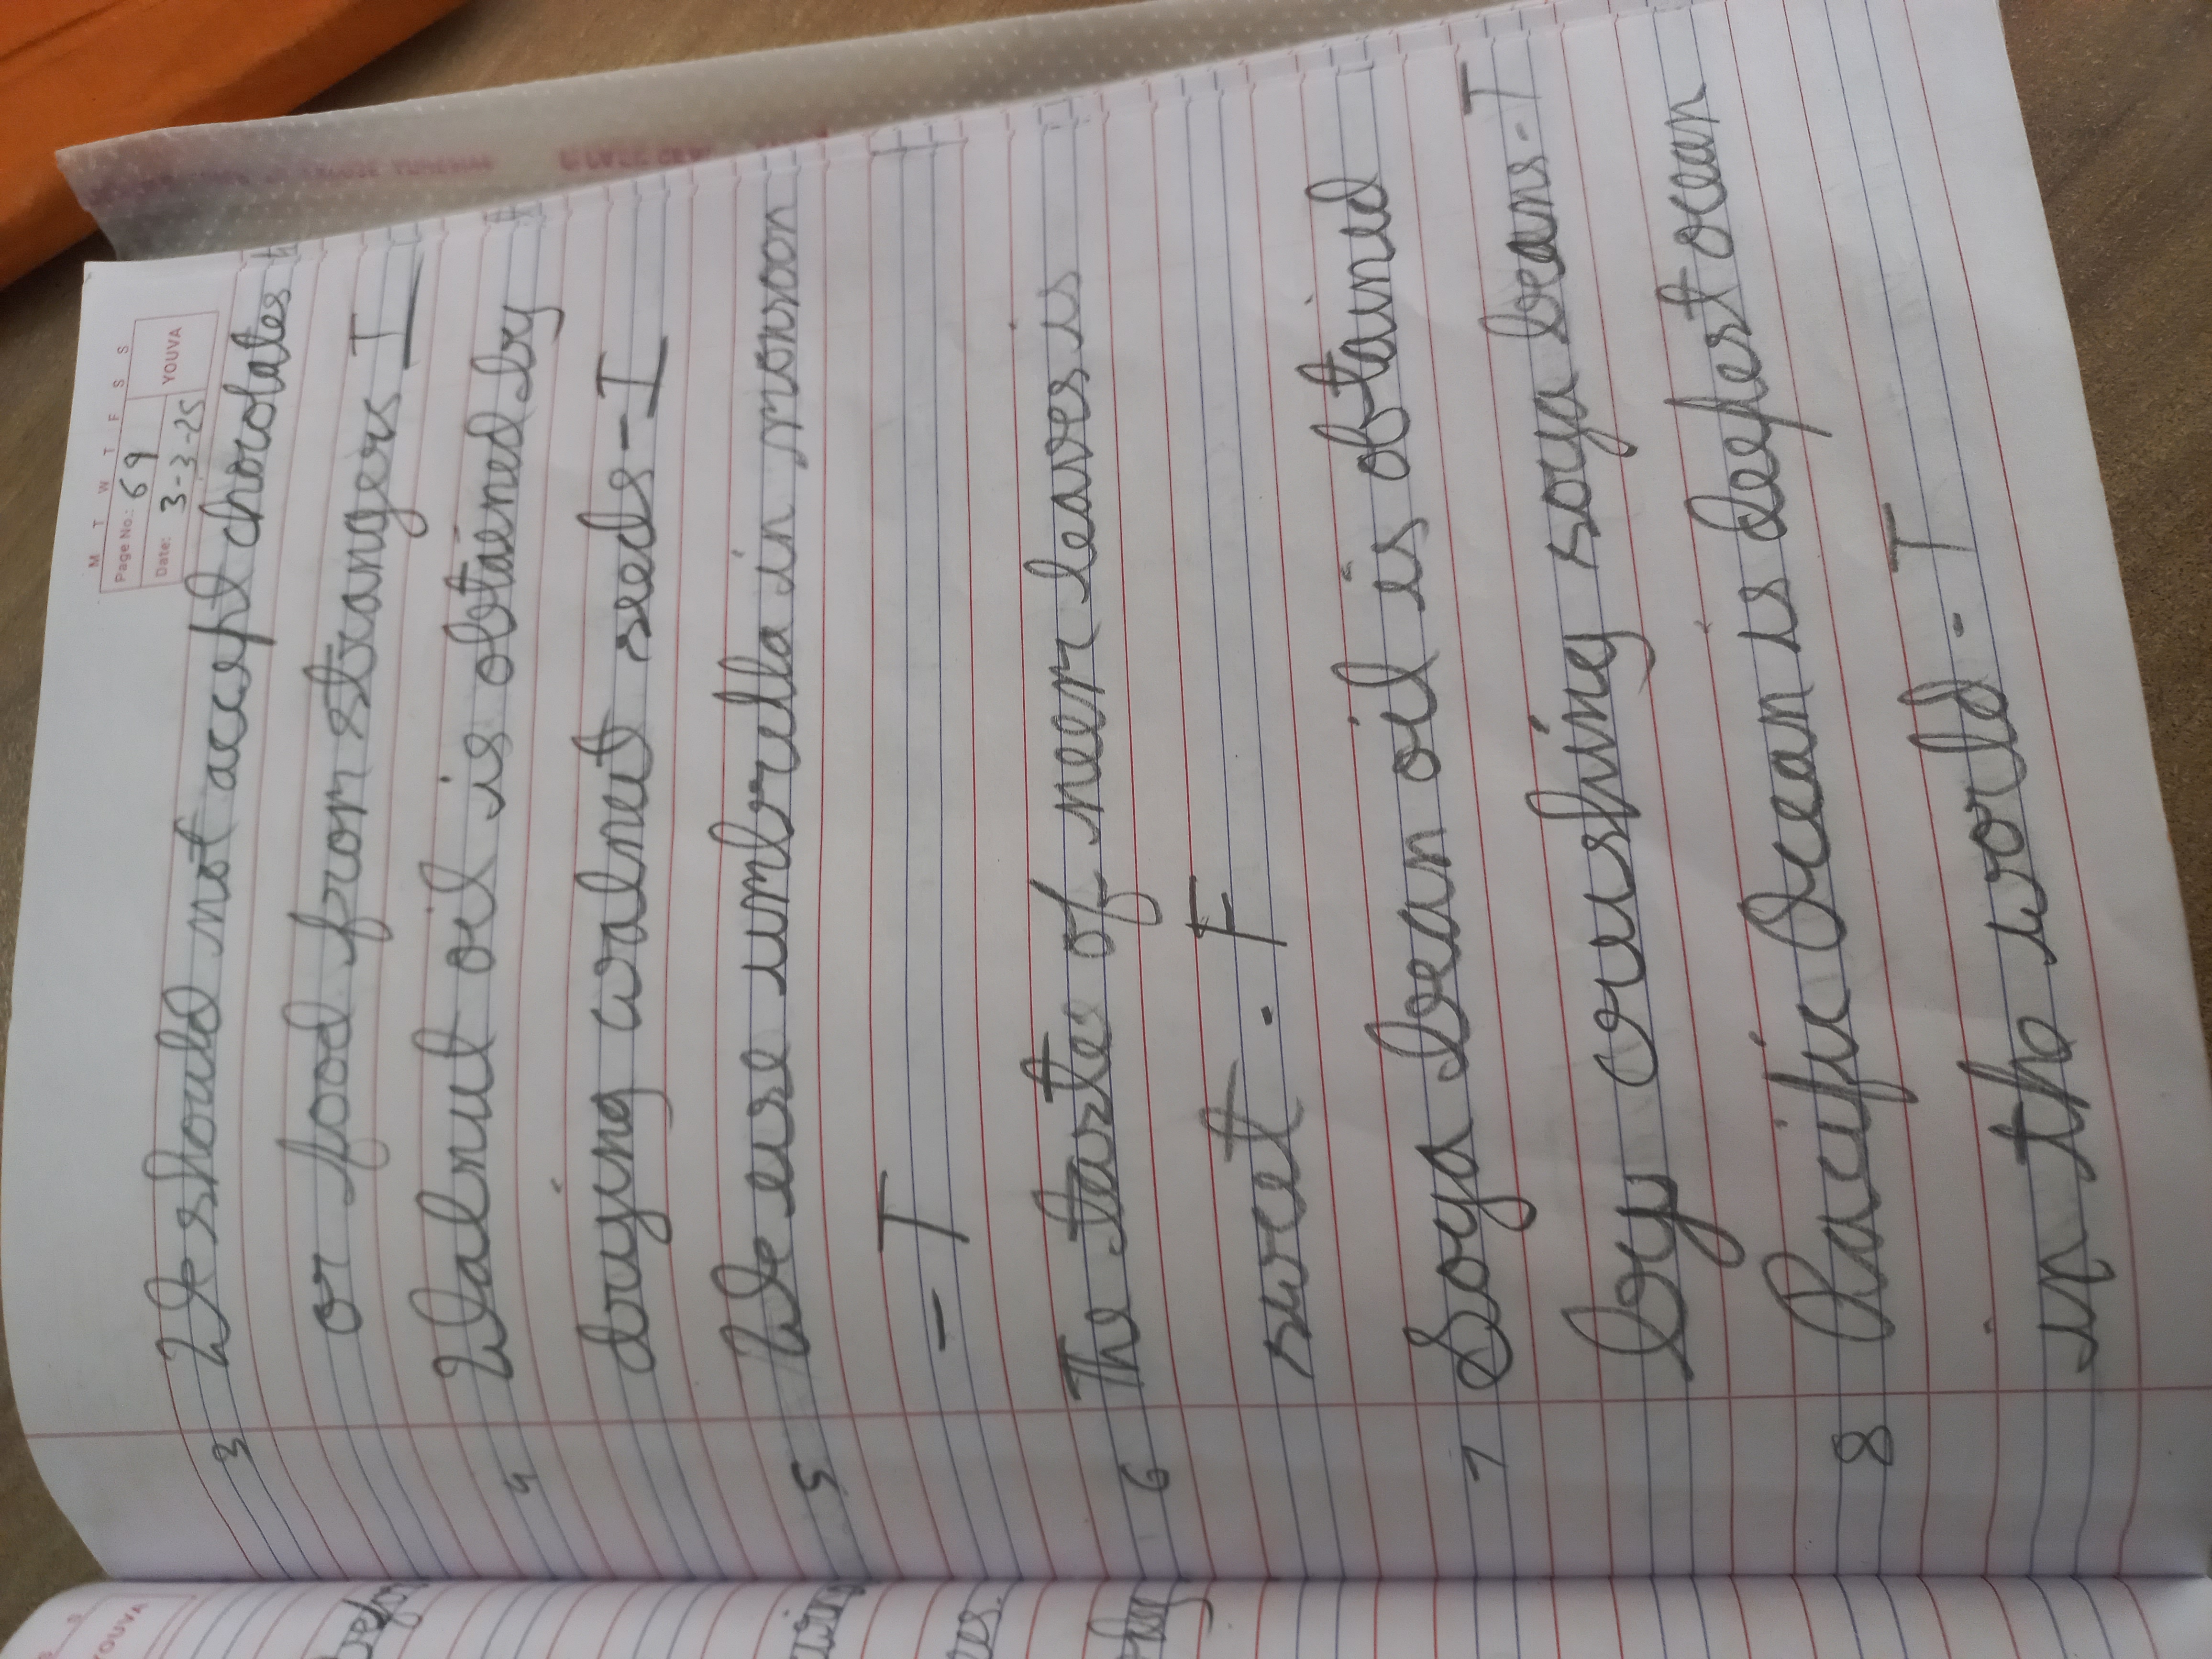 M T W T F S S
Page No.: 69
Date: 3-3-25
YOUVA
3 We should not accept chocolates
or food from strangers T
4 Walnut oil is obtained by
drying walnut seeds - T
5 We use umbrella in monsoon
- T
6 The taste of neem leaves is
sweet. F
7 Soya bean oil is obtained
by crushing soya beans. T
8 Pacific Ocean is deepest ocean
in the world. T
YOUVA